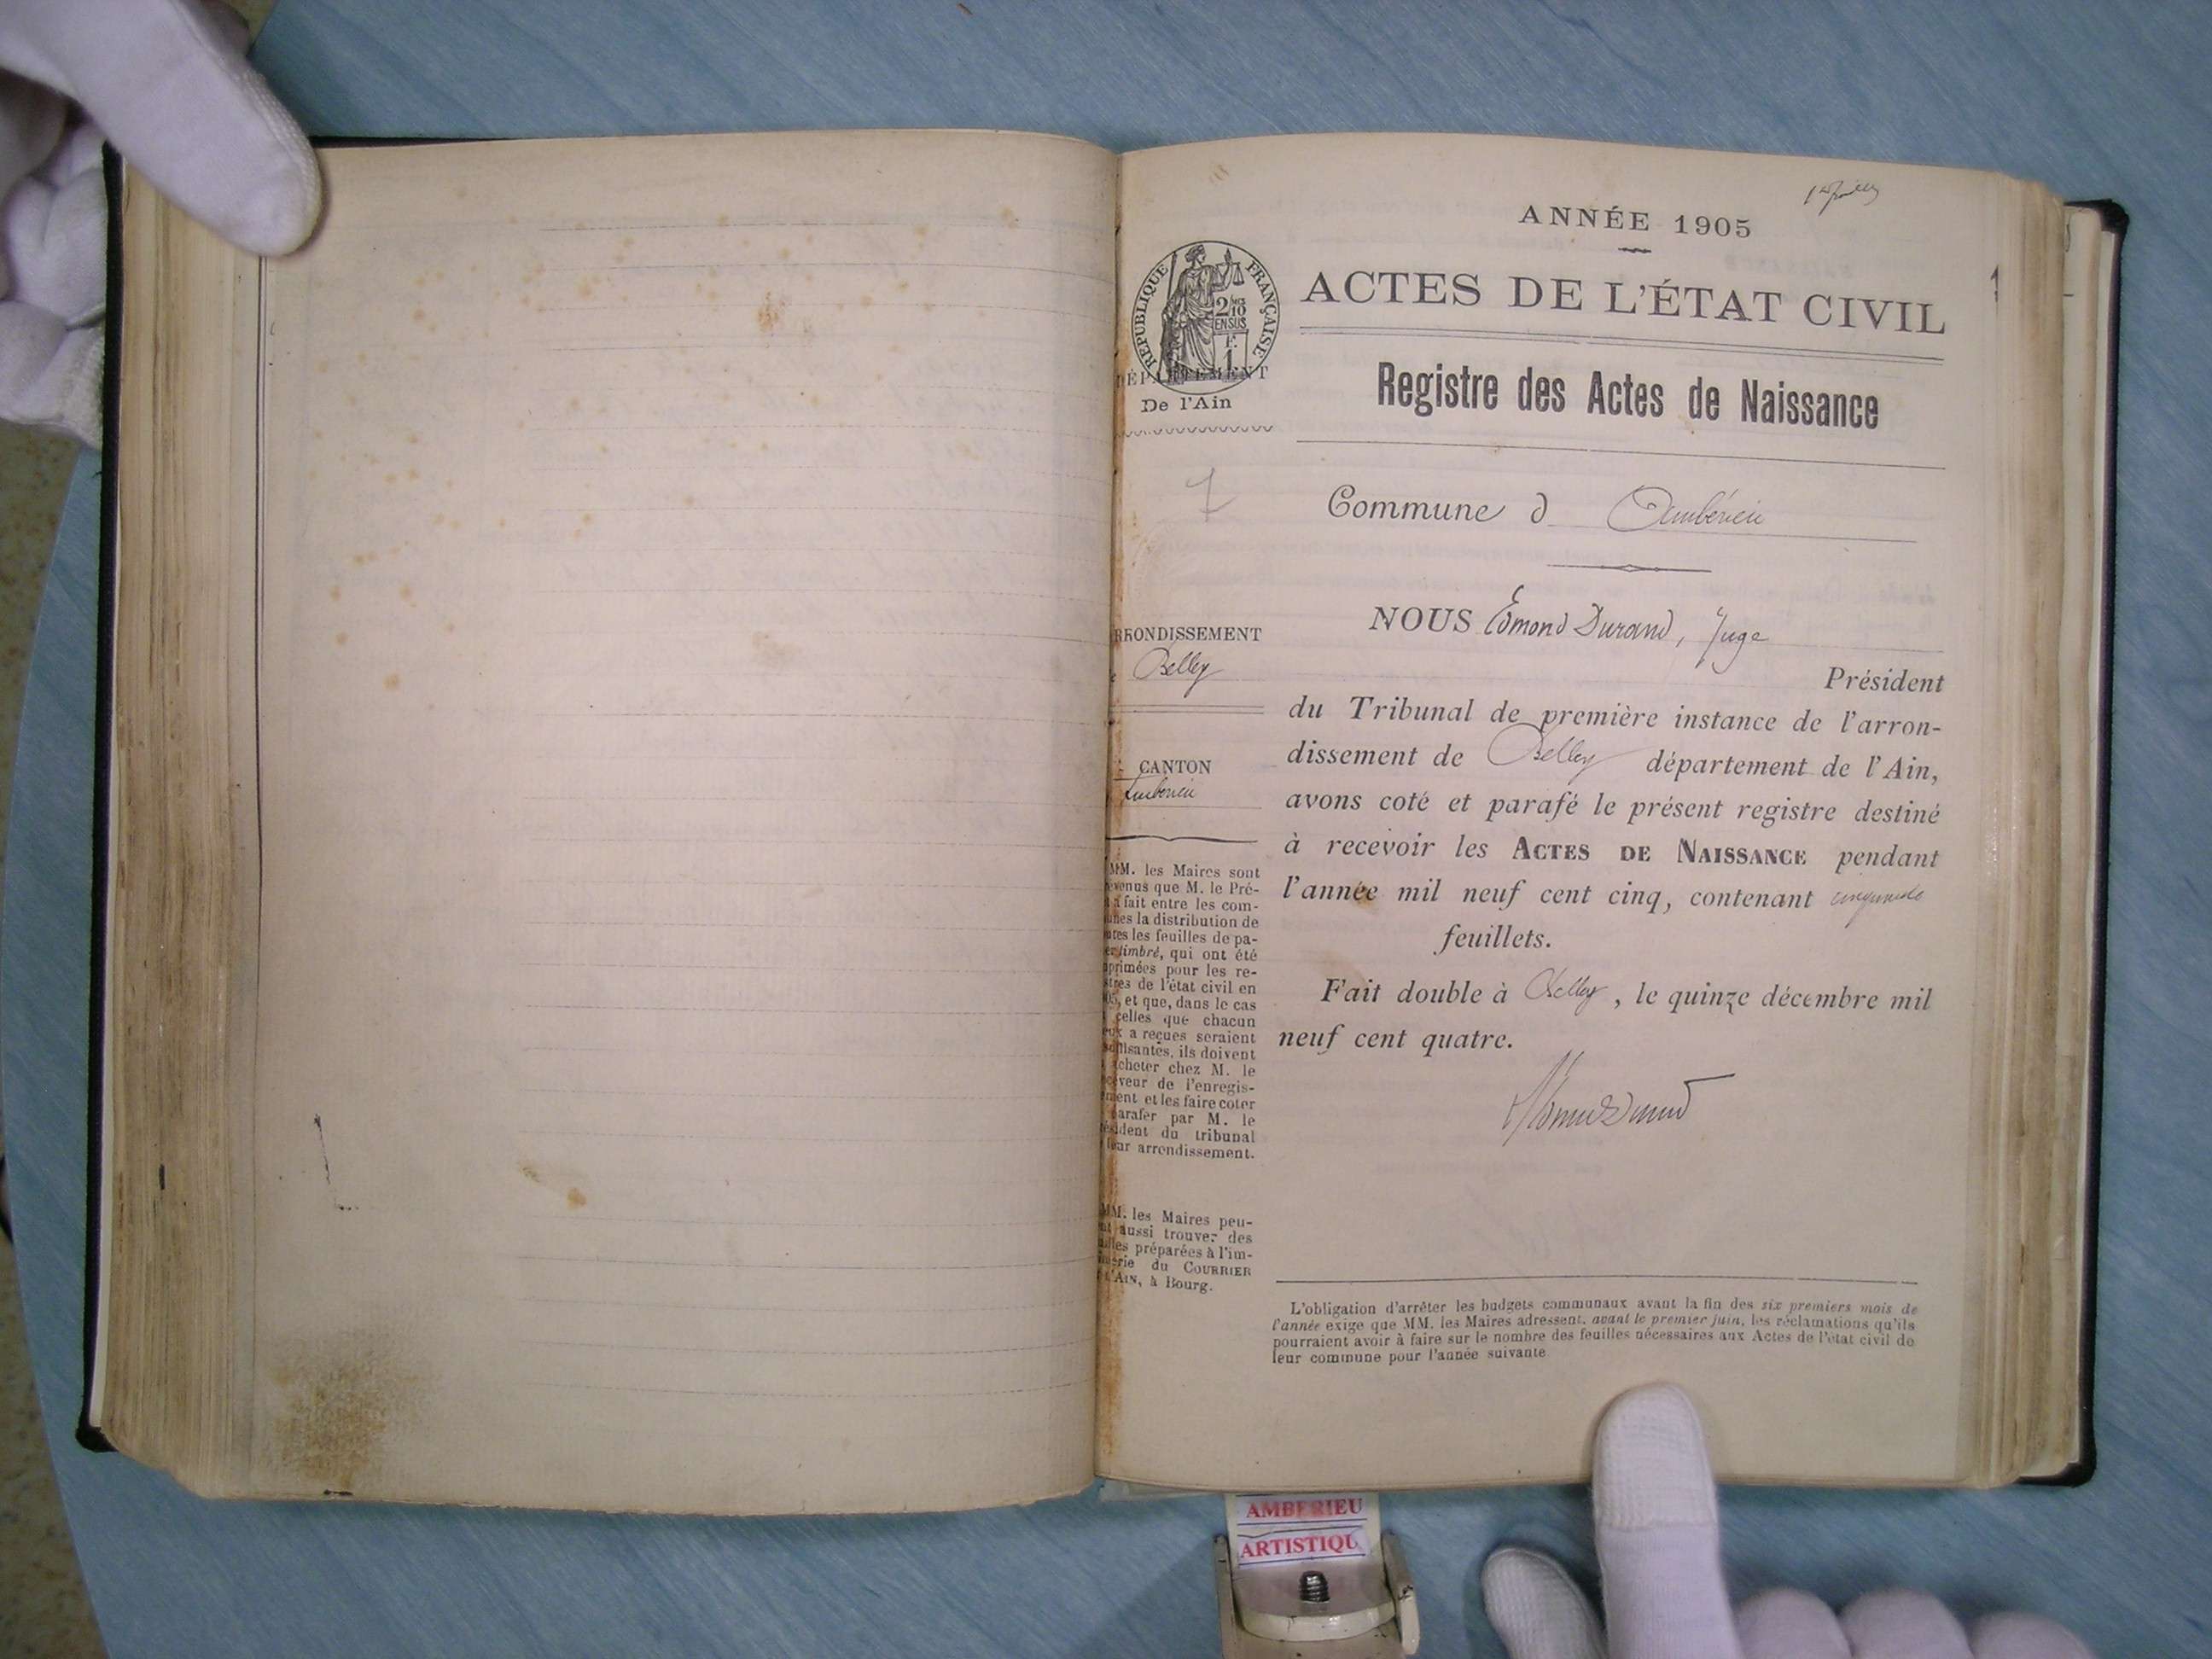 ANNÉE 1905
1
ACTES DE L'ÉTAT CIVIL
RÉPUBLIQUE FRANÇAISE
2/10
EN SUS
F.
1
DÉPARTEMENT
De l'Ain
Registre des Actes de Naissance
7
Commune d Ambérieu
NOUS Edmond Durand, Juge
Président
du Tribunal de première instance de l'arron-
dissement de Belley département de l'Ain,
avons coté et parafé le présent registre destiné
à recevoir les ACTES DE NAISSANCE pendant
l'année mil neuf cent cinq, contenant cinquante
feuillets.
Fait double à Belley, le quinze décembre mil
neuf cent quatre.
RRONDISSEMENT
Belley
CANTON
Ambérieu
MM. les Maires sont
venus que M. le Pré-
a fait entre les com-
nes la distribution de
tes les feuilles de pa-
timbré, qui ont été
primées pour les re-
stres de l'état civil en
05, et que, dans le cas
celles que chacun
ux a reçues seraient
ffisantes, ils doivent
cheter chez M. le
ceveur de l'enregis-
ment et les faire coter
parafer par M. le
sident du tribunal
leur arrondissement.
MM. les Maires peu-
nt aussi trouver des
illes préparées à l'im-
merie du COURRIER
L'AIN, à Bourg.
L'obligation d'arrêter les budgets communaux avant la fin des six premiers mois de
l'année exige que MM. les Maires adressent, avant le premier juin, les réclamations qu'ils
pourraient avoir à faire sur le nombre des feuilles nécessaires aux Actes de l'état civil de
leur commune pour l'année suivante
AMBERIEU
ARTISTIQU